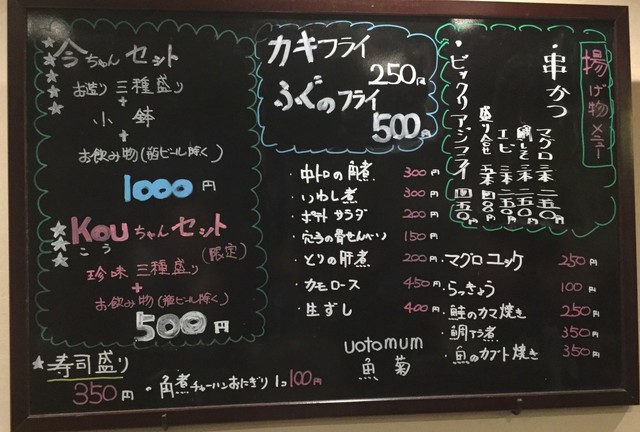 今ちゃんセット
お造り三種盛り
+
小鉢
+
お飲み物(瓶ビール除く)
1000円
Kouちゃんセット
こう
(限定)
珍味三種盛り
+
お飲み物(瓶ビール除く)
500円
寿司盛り
350円
・角煮チャーハンおにぎり1コ100円
カキフライ
250円
ふぐのフライ
500円
・中トロの角煮 300円
・いわし煮 300円
・ポテトサラダ 200円
・穴子の骨せんべい 150円
・とりの肝煮 200円
・カモロース 450円
・生ずし 400円
uotomum
魚菊
揚げ物メニー
・串かつ
マグロ 二本 二五〇
鯛しそ 二本 二五〇
エビ 二本 二五〇
盛り合せ 五本 四〇〇円
・ビックリアジフライ 四五〇円
・マグロユッケ 250円
・らっきょう 100円
・鮭のカマ焼き 250円
・鯛アラ煮 350円
・魚のカブト焼き 350円